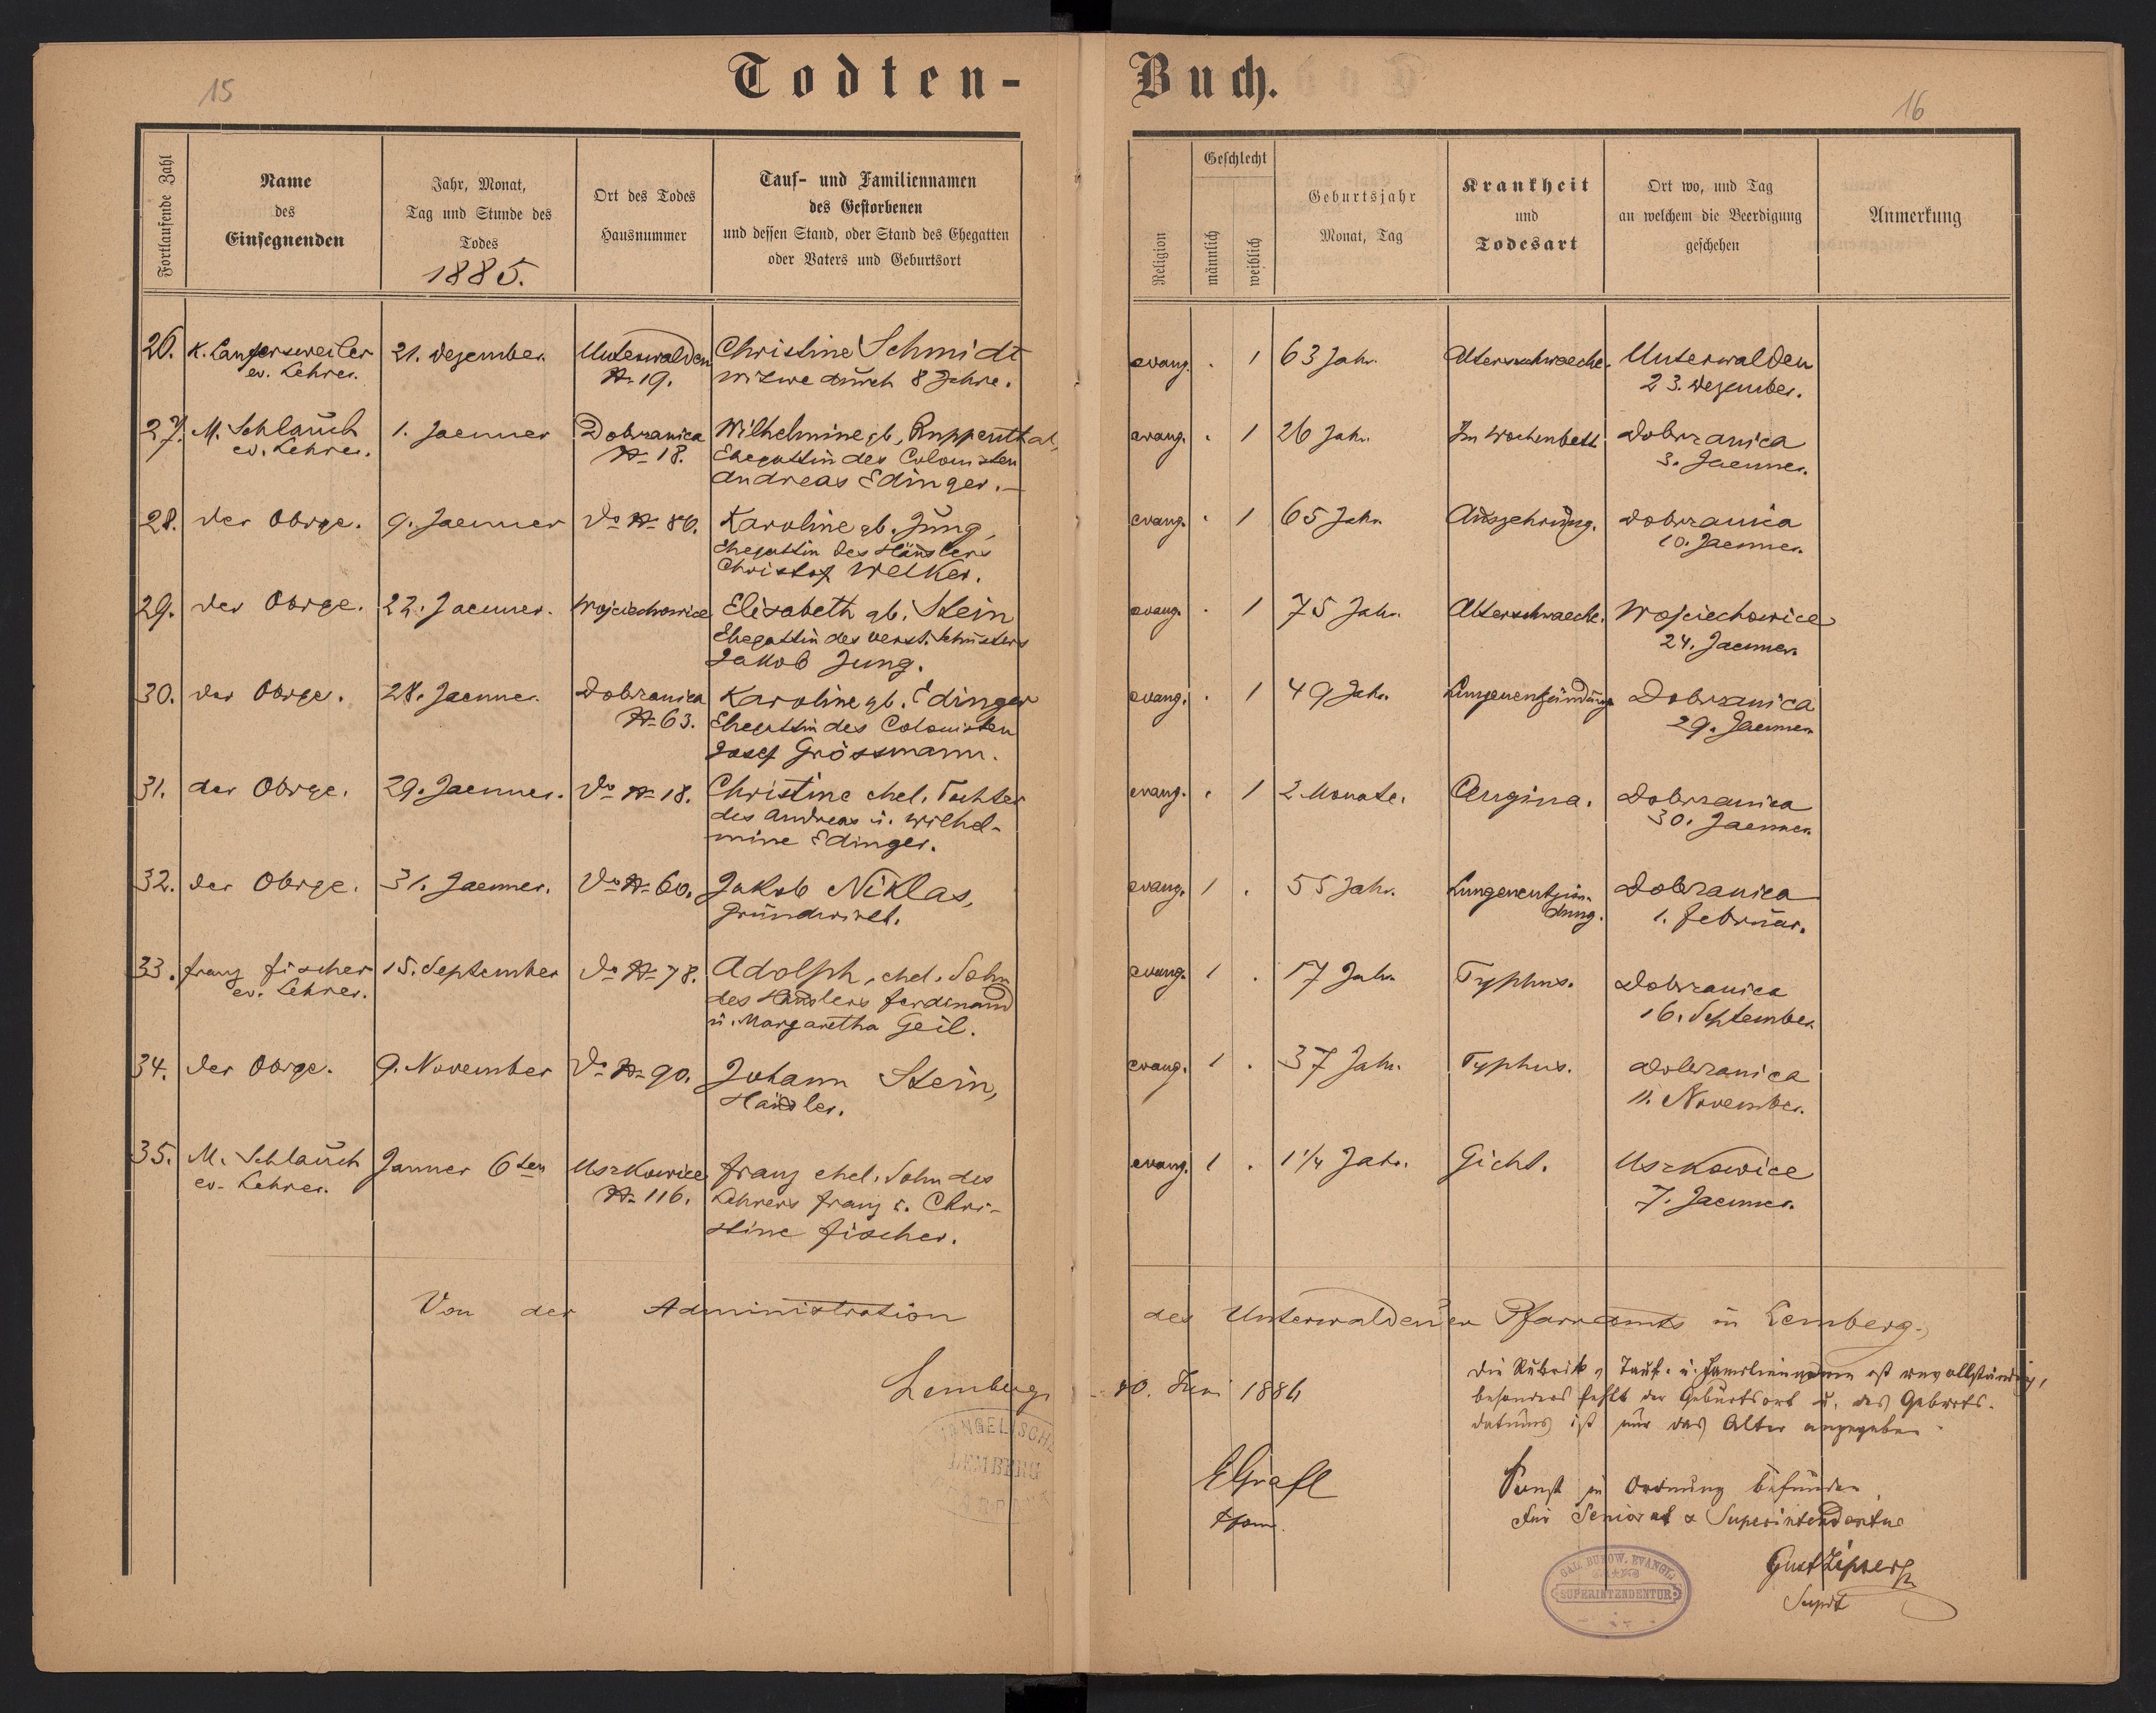 15
Todten-
Buch.
16
Fortlaufende Zahl
Name
des
Einsegnenden
Jahr, Monat,
Tag und Stunde des
Todes
1885.
Ort des Todes
Hausnummer
Tauf- und Familiennamen
des Gestorbenen
und dessen Stand, oder Stand des Ehegatten
oder Vaters und Geburtsort
Religion
Geschlecht
männlich
weiblich
Geburtsjahr
Monat, Tag
Krankheit
und
Todesart
Ort wo, und Tag
an welchem die Beerdigung
geschehen
Anmerkung
26. K. Langersweiler 21. Dezember. Unterwalden Christine Schmidt evang. . 1 63 Jahr. Altersschwaeche. Unterwalden
ev. Lehrer. № 19. Witwe durch 8 Jahre. 23. Dezember.
27. M. Schlauch 1. Jaenner Dobrzanica Wilhelmine gb. Ruppenthal, evang. . 1 26 Jahr. Im Wochenbett. Dobrzanica
ev. Lehrer. № 18. Ehegattin des Colonisten 3. Jaenner.
Andreas Edinger.—
28. der Obige. 9. Jaenner do № 80. Karoline gb. Jung, evang. . 1 65 Jahr. Auszehrung. Dobrzanica
Ehegattin des Häuslers 10. Jaenner.
Christof Welker.
29. der Obige. 22. Jaenner. Wojciechowice Elisabeth gb. Stein evang. . 1 75 Jahr. Alterschwaeche. Wojciechowice
Ehegattin des verst. Schusters 24. Jaenner.
Jakob Jung.
30. der Obige. 28. Jaenner. Dobrzanica Karoline gb. Edinger evang. . 1 49 Jahr. Lungenentzündung Dobrzanica
№ 63. Ehegattin des Colonisten 29. Jaenner
Josef Grössmann.
31. der Obige. 29. Jaenner. do № 18. Christine ehel. Tochter evang. . 1 2 Monate. Angina. Dobrzanica
des Andreas u. Wilhel- 30. Jaenner.
mine Edinger.
32. der Obige. 31. Jaenner. do № 60. Jakob Niklas, evang. 1 . 55 Jahr. Lungenentzün- Dobrzanica
Grundwirt. dung. 1. Februar.
33. Franz Fischer 15. September do № 78. Adolph, ehel. Sohn evang. 1 . 17 Jahr. Typhus. Dobrzanica
ev. Lehrer. des Häuslers Ferdinand 16. September.
u. Margaretha Geil.
34. der Obige. 9. November do № 90. Johann Stein, evang. 1 . 37 Jahr. Typhus. Dobrzanica
Häusler. 11. November.
35. M. Schlauch Janner 6ten Uszkowice Franz ehel. Sohn des evang. 1 . 1 1/4 Jahr. Gicht. Uszkowice
ev. Lehrer. № 116. Lehrers Franz u. Chri- 7. Jaenner.
stine Fischer.
Von der Administration des Unterwaldener Pfarramts in Lemberg.
Lemberg
Juni 1886
EVANGELISCHE
LEMBERG
Die Rubrik, Tauf- u. Familiennamen ist unvollständig,
besonders fehlt der Geburtsort u. des Geburts-
datums ist nur das Alter angegeben
EGrafl
Sonst in Ordnung befunden
Für Seniorat & Superintendentur
Gust Zipser
Supdt
GAL. BUKOW. EVANGL.
SUPERINTENDENTUR